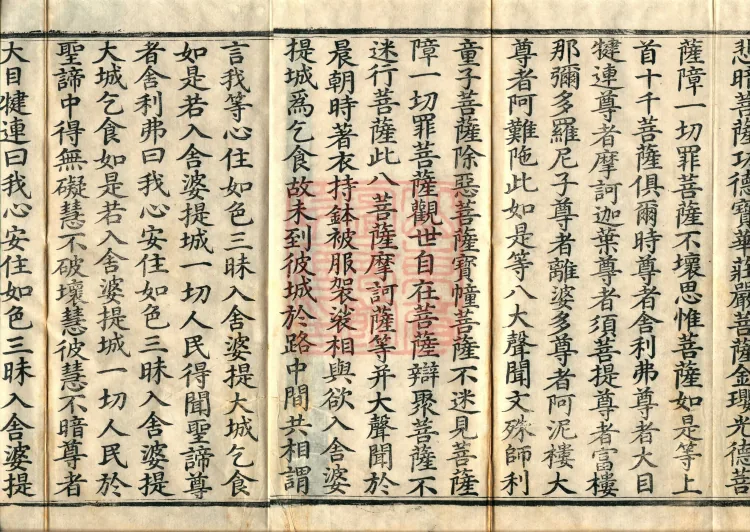 悲暗菩薩功德寶華莊嚴菩薩金瓔光德菩
薩障一切罪菩薩不壞思惟菩薩如是等上
首十千菩薩俱爾時尊者舍利弗尊者大目
犍連尊者摩訶迦葉尊者須菩提尊者富樓
那彌多羅尼子尊者離婆多尊者阿泥樓大
尊者阿難陁此如是等八大聲聞文殊師利
童子菩薩除惡菩薩寶幢菩薩不迷見菩薩
障一切罪菩薩觀世自在菩薩辯聚菩薩不
迷行菩薩此八菩薩摩訶薩等并大聲聞於
晨朝時著衣持鉢被服袈裟相與欲入舍婆
提城爲乞食故未到彼城於路中間共相謂
言我等心住如色三昧入舍婆提大城乞食
如是若入舍婆提城一切人民得聞聖諦尊
者舍利弗曰我心安住如色三昧入舍婆提
大城乞食如是若入舍婆提城一切人民於
聖諦中得無礙慧不破壞慧彼慧不暗尊者
大目犍連曰我心安住如色三昧入舍婆提